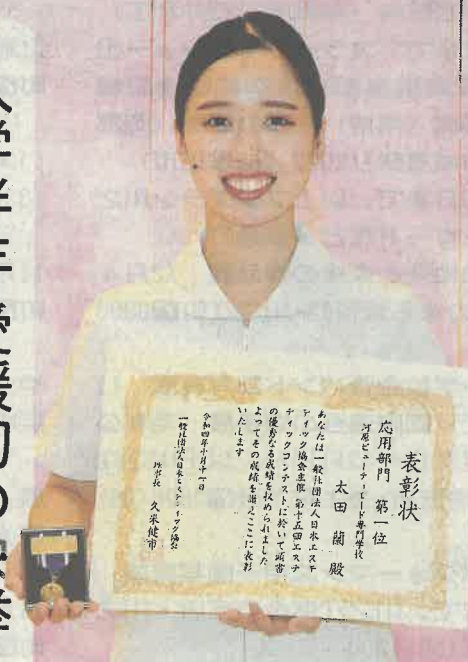 表彰状
応用部門 第一位
河原ビューティモード専門学校
太田 蘭 殿
あなたは一般社団法人日本エステ
ティック協会主催 第十五回エステ
ティックコンテストに於いて頭書
の優秀なる成績を収められました
よってその成績を讃えここに表彰
いたします
令和四年十月十一日
一般社団法人日本エステティック協会
理事長 久米健市